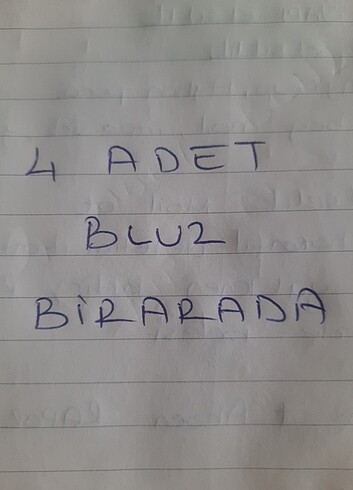 4 ADET
BLUZ
BİRARADA